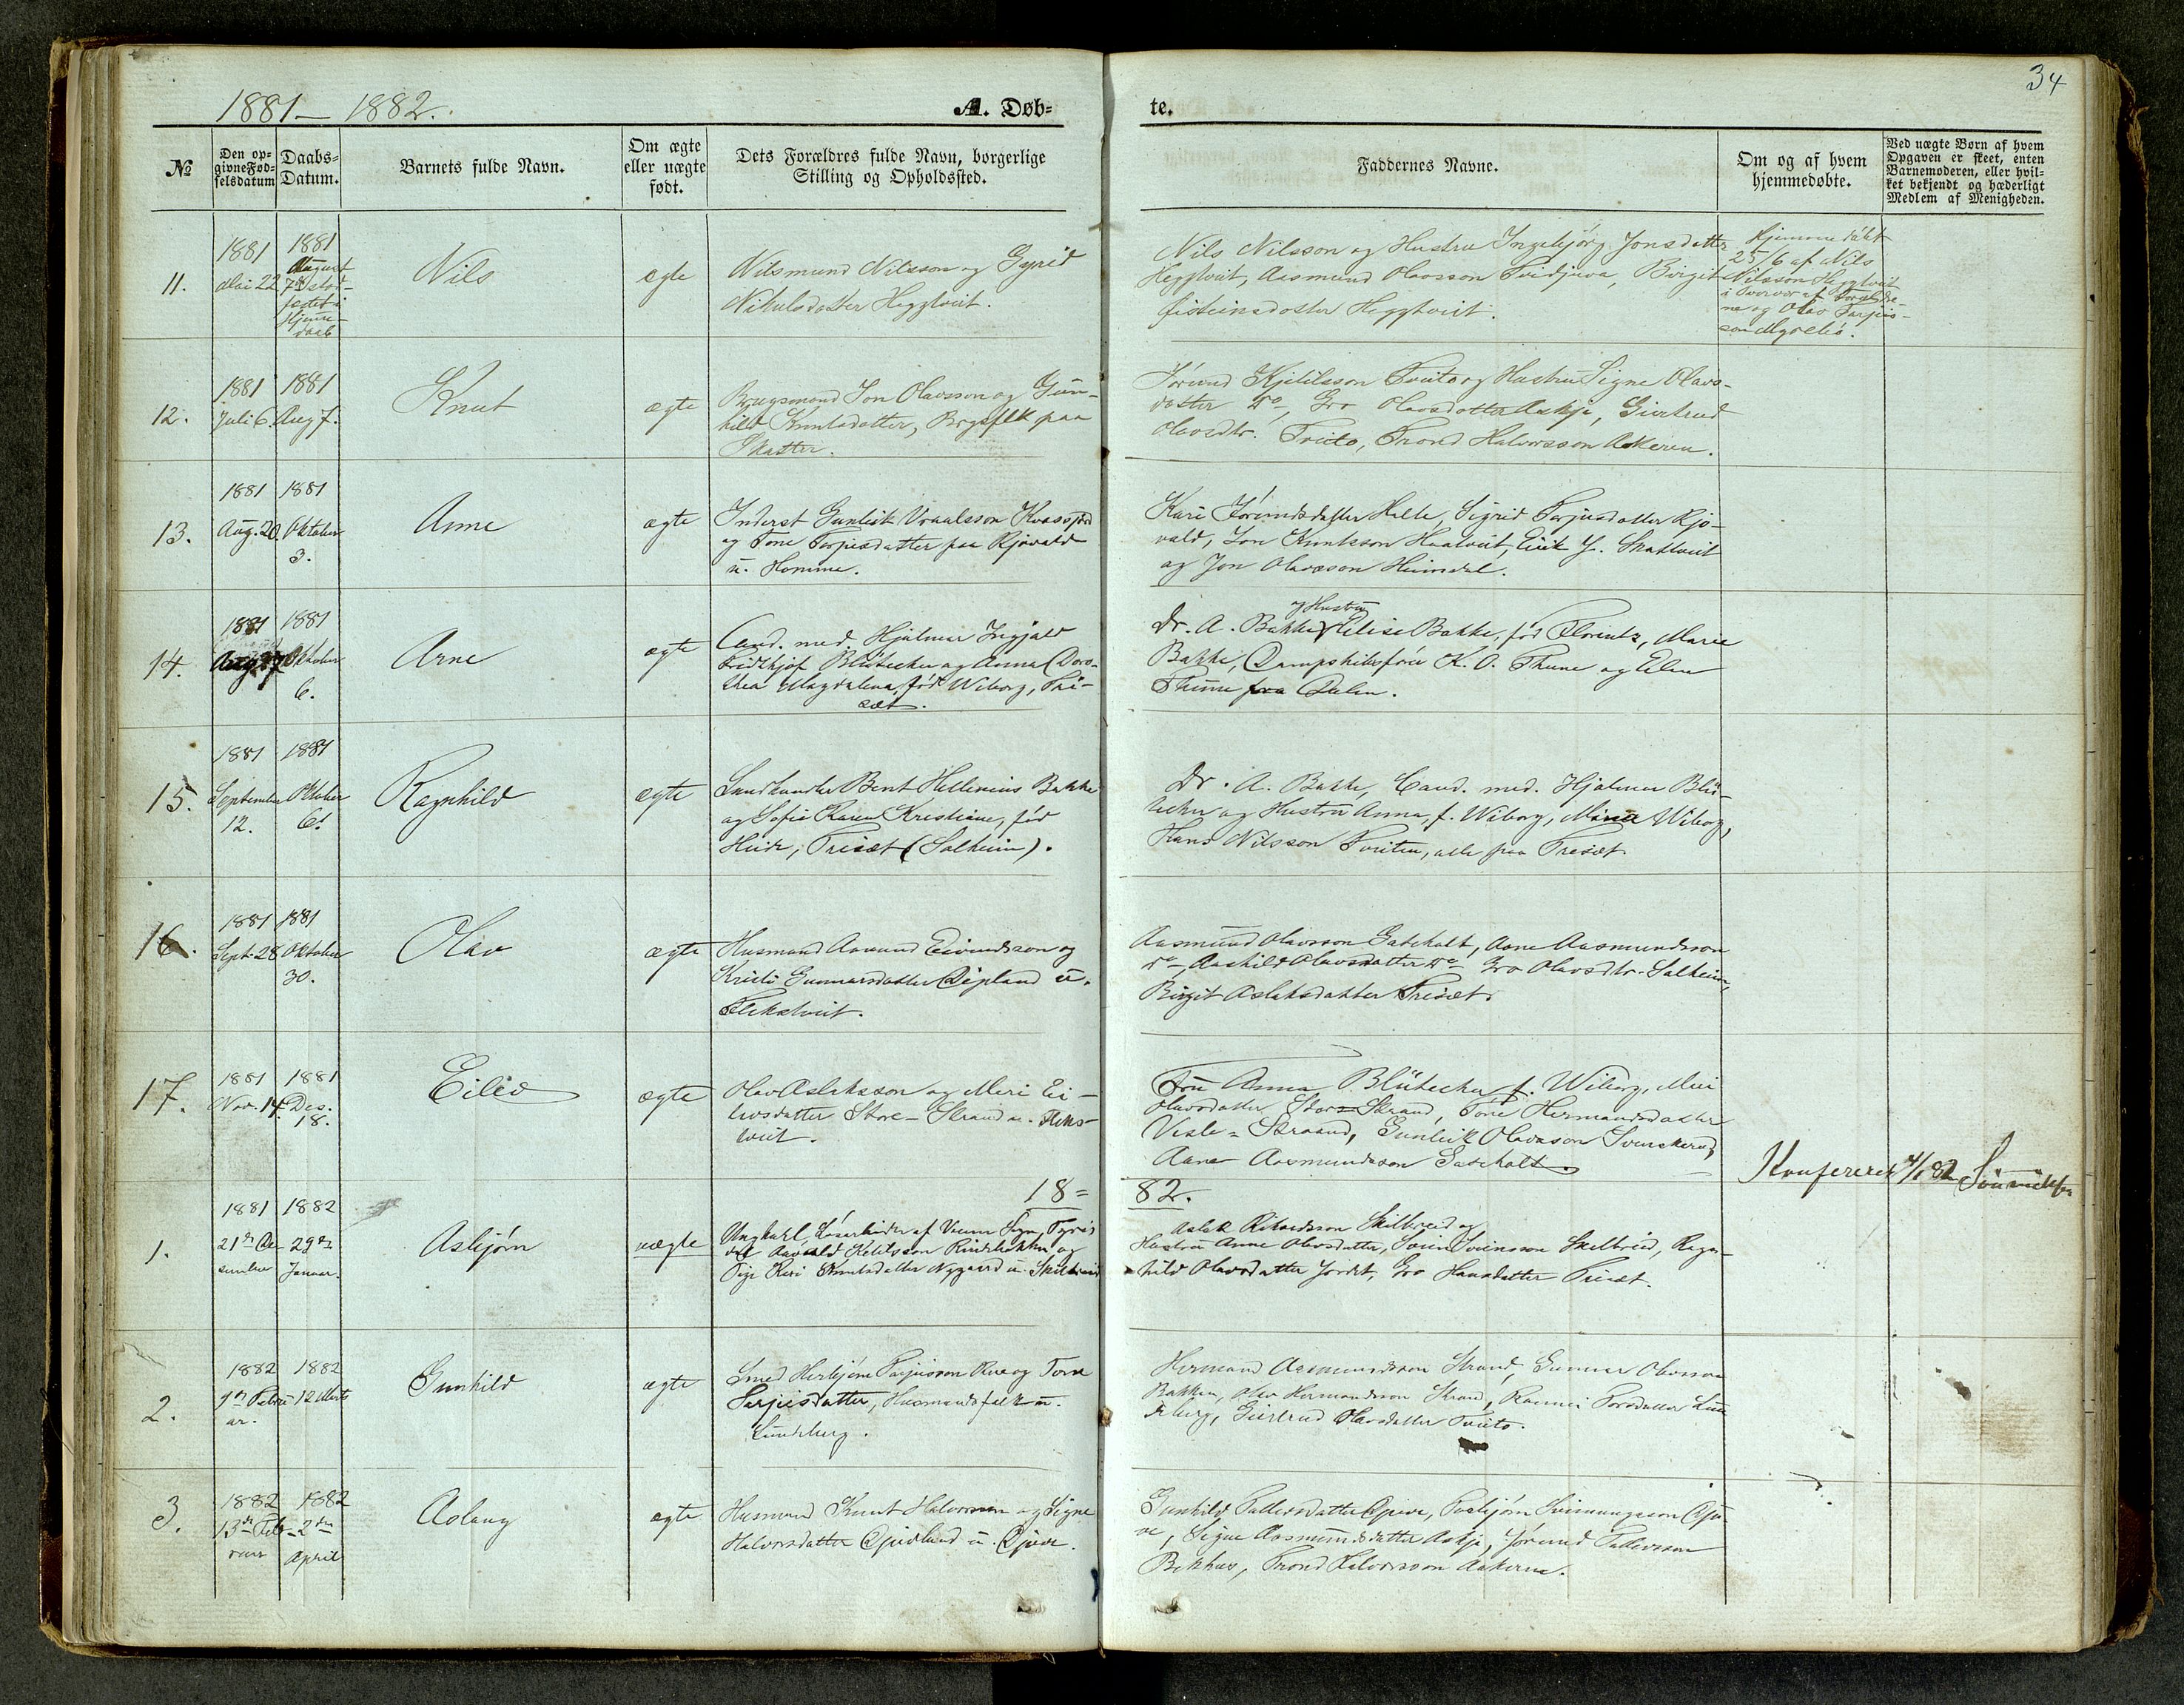 34
1881 – 1882.
A. Døb-
te.
№
Den op-
givne Fød-
selsdatum
Daabs-
Datum.
Barnets fulde Navn.
Om ægte
eller uægte
født.
Dets Forældres fulde Navn, borgerlige
Stilling og Opholdssted.
Faddernes Navne.
Om og af hvem
hjemmedøbte.
Ved uægte Børn af hvem
Opgaven er skeet, enten
Barnemoderen, eller hvil-
ket bekjendt og hæderligt
Medlem af Menigheden.
11.
1881
Mai 22
1881
August
7de stad-
festet i
Hjemme-
daab
Nils
ægte
Nilsmund Nilsson og Gyrid
Nikulsdatter Heggtveit.
Nils Nilsson og Hustru Ingebjørg Jonsdatter
Heggtveit, Aasmund Olavsson Birgit
Heggtveit.
Hjemmedøbt
25/6 af Nils
Nilsson Heggtveit
i Nærvær af Forældre-
ne og Olav Tarjeis-
son
12.
1881
Juli 6.
1881
Aug 7.
Knut
ægte
Brugsmand Jon Olavsson og Gun-
hild Knutsdatter, Brgsflk paa
Skatter.
Jørund Kjetilsson Tveito og Hustru Signe Olavs-
datter Do, Gro Olavsdatter Askje, Giertrud
Olavsdtr. Tveito, Trond Halvorsson Aakeren.
13.
1881
Aug. 20.
1881
Oktober
3.
Anne
ægte
Inderst Gunleik Vraalsson
og Tone Tarjeisdatter paa Rjovald
u. Homme.
Kari Jørundsdatter Helle, Sigrid Tarjeisdatter Rjo-
vald, Jon Knutsson Haatveit, Eivik J.
og Jon Olavsson Heimdal.
14.
1881
Aug. 7
1881
Oktober
6.
Arne
ægte
Cand. med. Hjalmar Ingjald
Fridthjof Blütecher og Anna Doro-
thea Magdalena, født Wiborg, Tri-
sæt.
og Hustru
Dr. A. Bakke Elise Bakke, fød Florentz, Marie
Bakke, Dampskibsfører K. O. Thune og Elen
Thune fra Dalen.
15.
1881
September
12.
1881
Oktober
6.
Ragnhild
ægte
Landhandler Bent Hellenius Bakke
og Sofie Karen Kristiane, fød
Heide, Trisæt (Solheim).
Dr. A. Bakke, Cand. med. Hjalmar Blü-
techer og Hustru Anna, f. Wiborg, Marie Wiborg,
Hans Nilsson Tveiten, alle paa Trisæt.
16.
1881
Sept. 28
1881
Oktober
30.
Olav
ægte
Husmand Aamund Eivindsson og
Kristi Gunnarsdatter Øipland u.
Flekstveit.
Aasmund Olavsson Gateholt, Aane Aasmundsson
Do, Aashild Olavsdatter Do Gro Olavsdtr. Solheim,
Birgit Aslaksdatter Trisæt.
17.
1881
Nov. 14.
1881
Des.
18.
Eiliv
ægte
Olav Aslaksson og Meri Ei-
livsdatter Store-Strand u. Fleks-
tveit.
Fru Anna Blütecher f. Wiborg, Mari
Olavsdatter Store-Strand, Tone Hermandsdatter
Vesle-Straand, Gunleik Olavsson
Aane Aasmundsson Gateholt.
Konfereret 4/1 82
18=
82.
1.
1881
21de De-
cember
1882
29de
Januar.
Asbjørn
uægte
Ungkarl, Løsarbeider af Vrum Sogn, Tyris-
dal Aavald Ketilsson og
Pige Kari Knutsdatter Nygaard u. Skilbreid
Aslak Rikardsson Skilbreid og
Hustru Anne Olavsdatter, Svein Sveinsson Skilbreid, Ragn-
hild Olavsdatter Jordet, Gro Hansdatter Trisæt.
2.
1882
9de Febru-
ar.
1882
12 Marts
Gunhild
ægte
Smed Herbjørn Tarjeisson Rue og Tone
Tarjeisdatter, Husmandsfolk u.
Lundeberg.
Hermand Aasmundsson Strand, Gunnar Olavsson
Bakken, Olav Hermandsson Strand, Rannei Torsdatter Lun-
deberg, Giertrud Olavsdatter Tveito.
3.
1882
13de Feb-
ruar
1882
2den
April
Aslaug
ægte
Husmand Knut Halvorsson og Signe
Halvorsdatter Gjuvland u. Gjuve.
Gunhild Tallevsdatter Gjuve, Torbjørn Sveinungsson Gju-
ve, Signe Aasmundsdatter Askje, Jørund Tallevsson
Bekhus, Trond Halvorsson Aakeren.